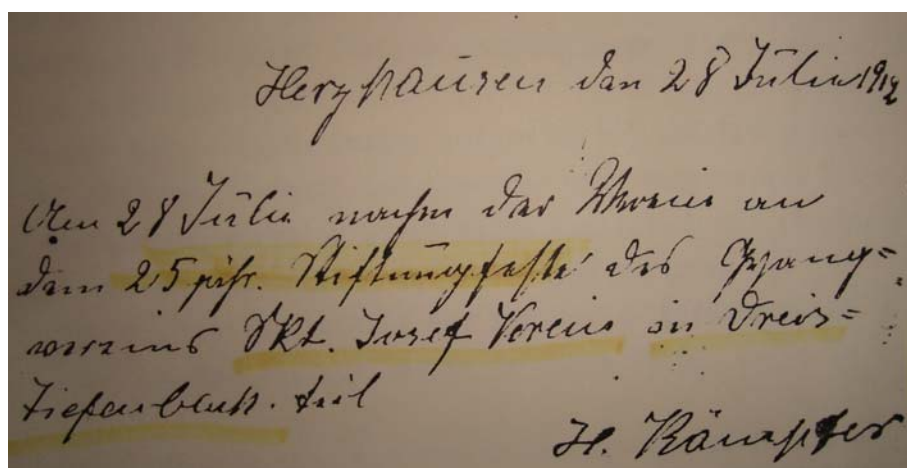 Herzhausen den 28 Juli 1912
Am 28 Juli nahm der Verein an
dem 25 jähr. Stiftungsfeste des Gesang=
vereins Skt. Josef Verein in Dreis=
Tiefenbach. teil
H. Kämpfer